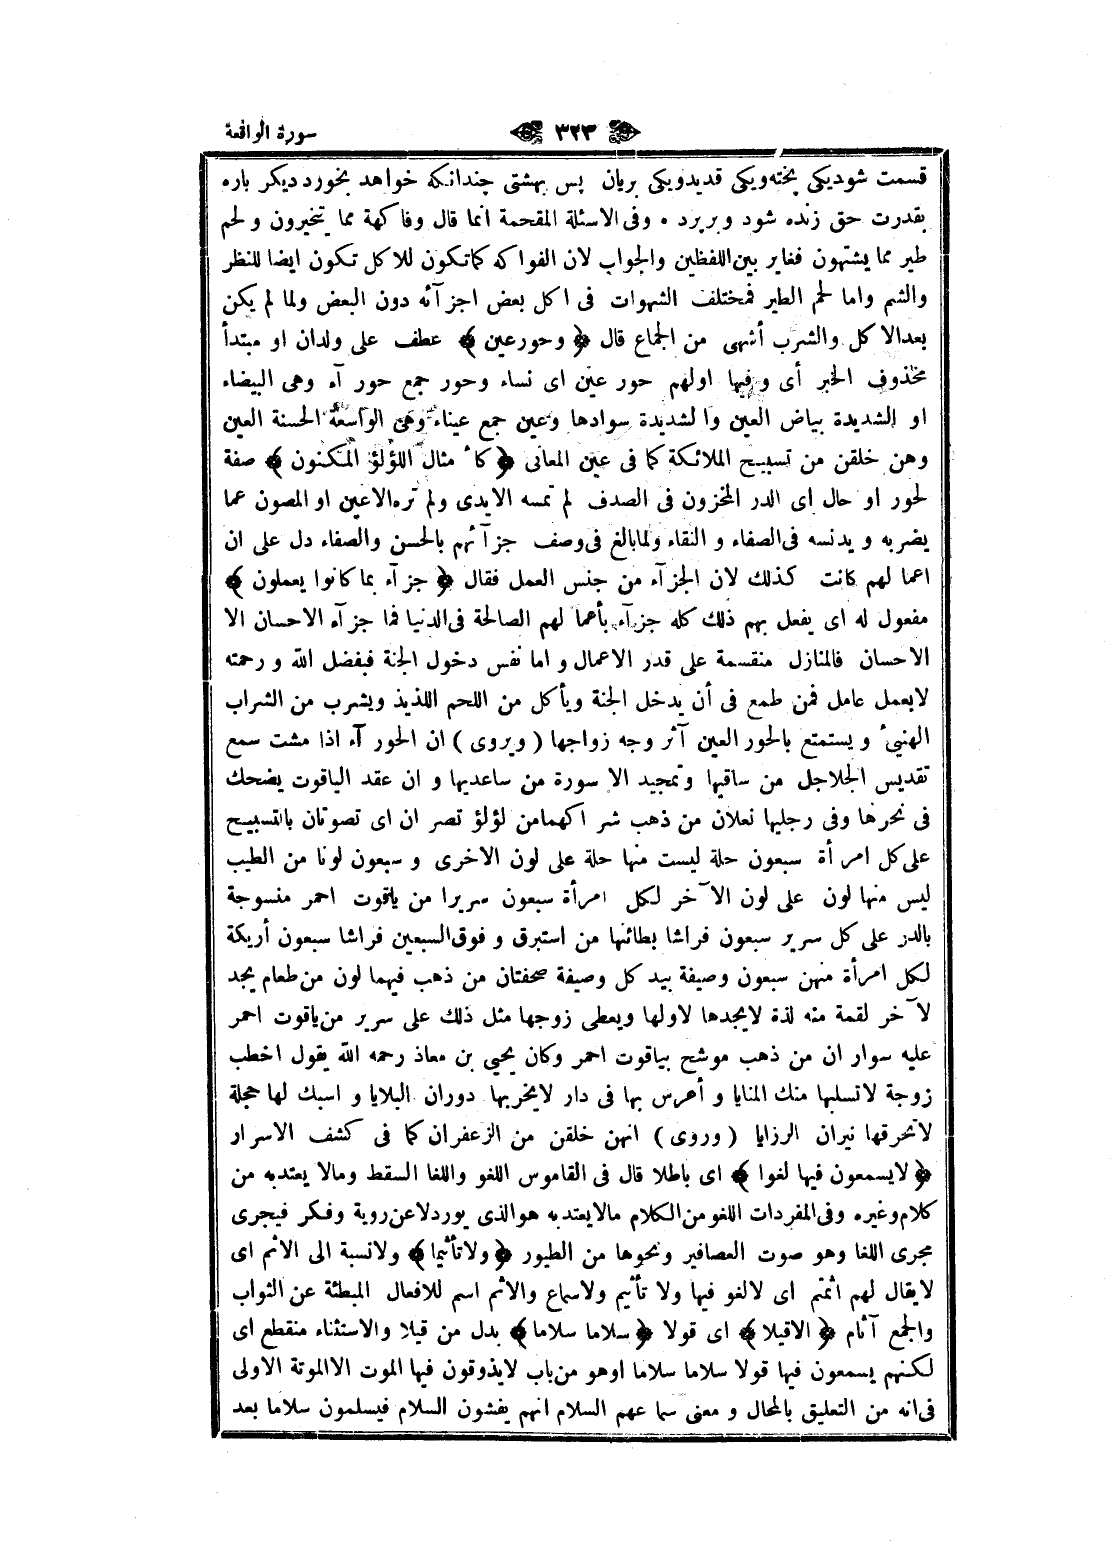 سورة الواقعة ٣٢٣
قسمت شوديكى پخته ويكى قديدويكى بريان پس بهشتى چندانكه خواهد بخورد ديكر باره
بقدرت حق زنده شود وبرپرد • وفى الاسئلة المقحمة انما قال وفاكهة مما يتخيرون ولحم
طير مما يشتهون فغاير بين اللفظين والجواب لان الفواكه كماتكون للاكل تكون ايضا للنظر
والشم واما لحم الطير فمختلف الشهوات فى اكل بعض اجزآئه دون البعض ولما لم يكن
بعدالاكل والشرب أشهى من الجماع قال ﴿ وحورعين ﴾ عطف على ولدان او مبتدأ
محذوف الخبر أى وفيها اولهم حور عين اى نساء وحور جمع حورآء وهى البيضاء
او الشديدة بياض العين والشديدة سوادها وعين جمع عيناء وهى الواسعة الحسنة العين
وهن خلقن من تسبيح الملائكة كما فى عين المعانى ﴿ كأمثال اللؤلؤ المكنون ﴾ صفة
لحور او حال اى الدر المخزون فى الصدف لم تمسه الايدى ولم تره الاعين او المصون عما
يضربه ويدنسه فى الصفاء والنقاء ولمابالغ فى وصف جزآئهم بالحسن والصفاء دل على ان
اعمالهم كانت كذلك لان الجزآء من جنس العمل فقال ﴿ جزآء بماكانوا يعملون ﴾
مفعول له اى يفعل بهم ذلك كله جزآء بأعمالهم الصالحة فى الدنيا فما جزآء الاحسان الا
الاحسان فالمنازل منقسمة على قدر الاعمال واما نفس دخول الجنة فبفضل الله ورحمته
لابعمل عامل فمن طمع فى أن يدخل الجنة ويأكل من اللحم اللذيذ ويشرب من الشراب
الهنيئ ويستمتع بالحور العين آثر وجه زواجها ( ويروى ) ان الحورآء اذا مشت سمع
تقديس الجلاجل من ساقيها وتمجيد الاسورة من ساعديها وان عقد الياقوت يضحك
فى نحرها وفى رجليها نعلان من ذهب شراكهمامن لؤلؤ تصران اى تصوتان بالتسبيح
على كل امرأة سبعون حلة ليست منها حلة على لون الاخرى وسبعون لونا من الطيب
ليس منها لون على لون الآخر لكل امرأة سبعون سريرا من ياقوت احمر منسوجة
بالدر على كل سرير سبعون فراشا بطائنها من استبرق وفوق السبعين فراشا سبعون أريكة
لكل امرأة منهن سبعون وصيفة بيد كل وصيفة صحفتان من ذهب فيهما لون من طعام يجد
لآخر لقمة منه لذة لايجدها لاولها ويعطى زوجها مثل ذلك على سرير من ياقوت احمر
عليه سواران من ذهب موشح بياقوت احمر وكان يحيى بن معاذ رحمه الله يقول اخطب
زوجة لاتسلبها منك المنايا وأعرس بها فى دار لايخربها دوران البلايا واسبك لها حجلة
لاتحرقها نيران الرزايا ( وروى ) انهن خلقن من الزعفران كما فى كشف الاسرار
﴿ لايسمعون فيها لغوا ﴾ اى باطلا قال فى القاموس اللغو واللغا السقط ومالا يعتدبه من
كلام وغيره وفى المفردات اللغومن الكلام مالايعتدبه هوالذى يوردلاعن روية وفكر فيجرى
مجرى اللغا وهو صوت العصافير ونحوها من الطيور ﴿ ولاتأثيما ﴾ ولانسبة الى الاثم اى
لايقال لهم اثمتم اى لالغو فيها ولا تأثيم ولاسماع والاثم اسم للافعال المبطئة عن الثواب
والجمع آثام ﴿ الاقيلا ﴾ اى قولا ﴿ سلاما سلاما ﴾ بدل من قيلا والاستثناء منقطع اى
لكنهم يسمعون فيها قولا سلاما سلاما اوهو من باب لايذوقون فيها الموت الاالموتة الاولى
فى انه من التعليق بالمحال ومعنى سماعهم السلام انهم يفشون السلام فيسلمون سلاما بعد